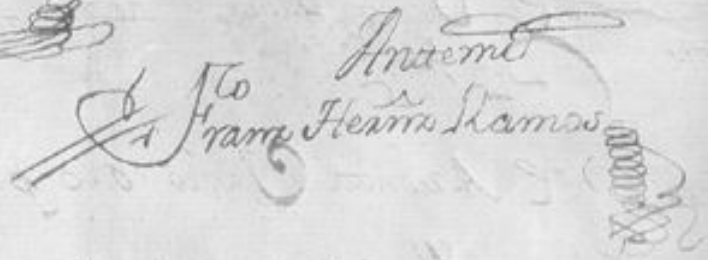 Antemi
Franco Hernz Ramos